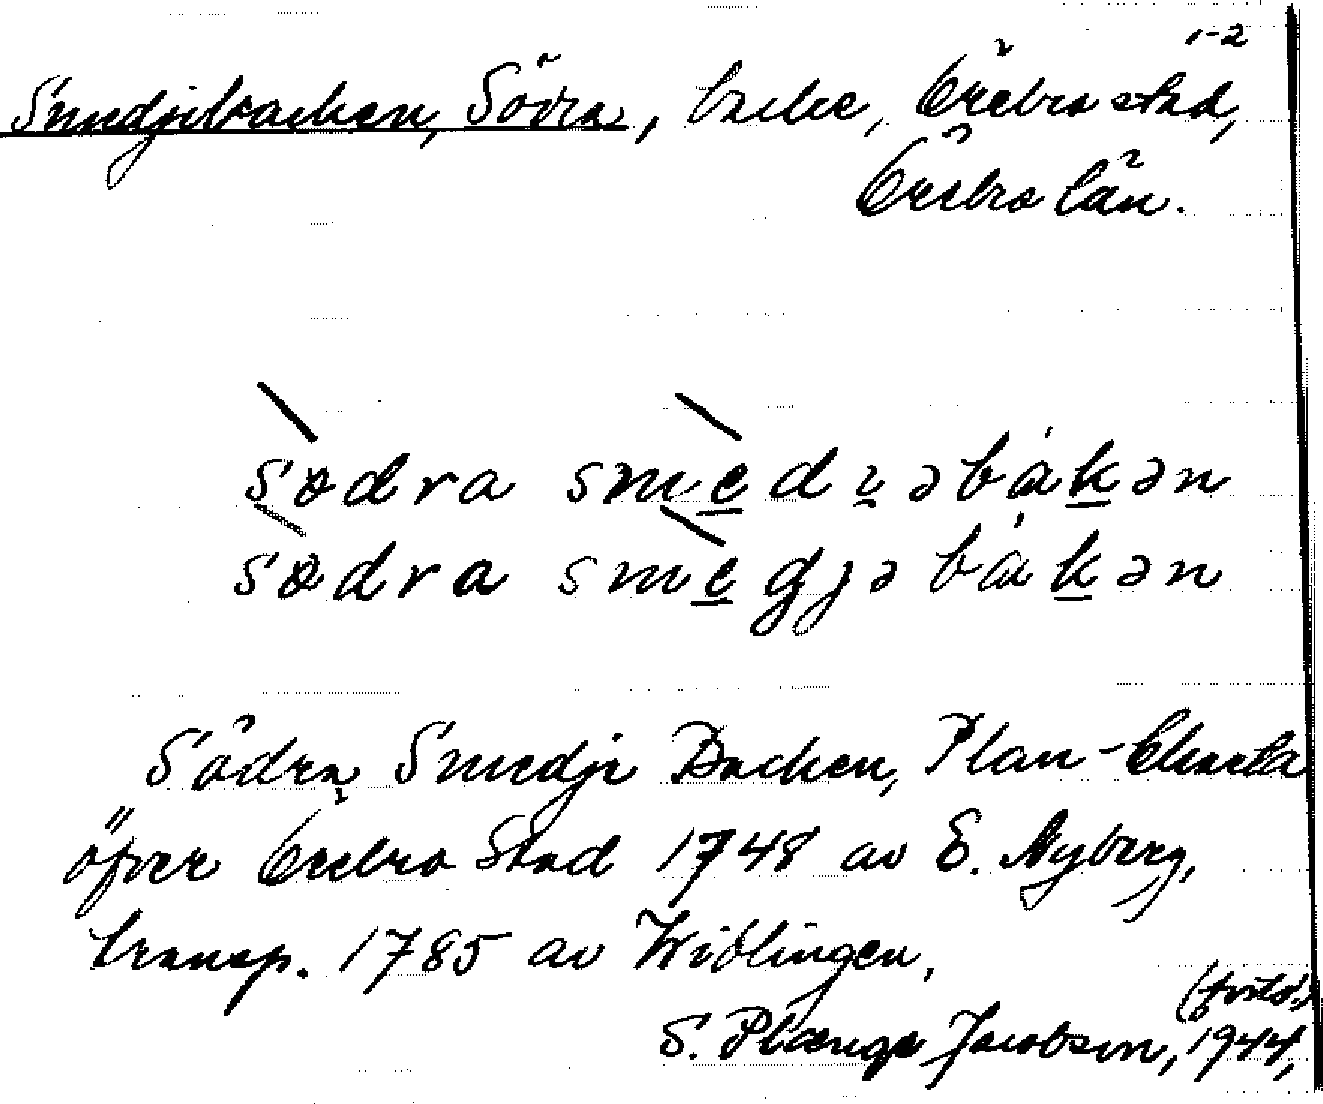 1-2
Smedjebacken, Södra, backe, Örebro stad,
Örebro län.
sødra smedɩəbákən
sødra smegjəbákən
Södra Smedje Backen, Plan-Charta
öfver Örebro Stad 1748 av E. Nyberg,
transp. 1785 av Widlingen.
(forts.)
S. Plænge Jacobson, 1944,